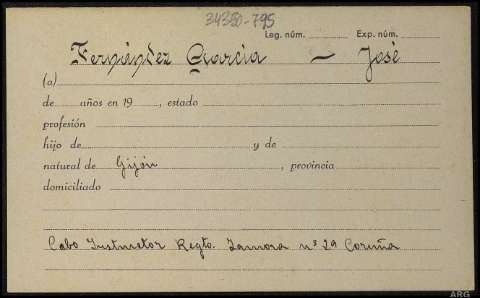 34380-795
Leg. núm. Exp. núm.
Fernández García — José
(a)
de años en 19 , estado
profesión
hijo de y de
natural de Gijón , provincia
domiciliado
Cabo Instructor Regto. Zamora nº 29 Coruña
ARG